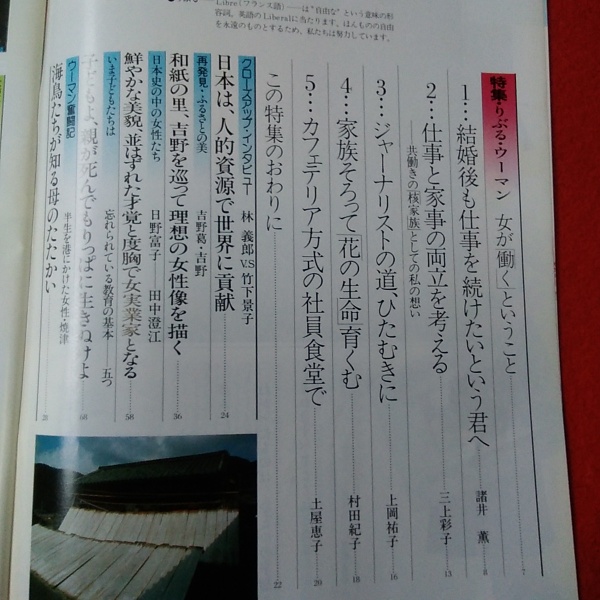 Libre(フランス語)——は“自由な”という意味の形
容詞。英語のLiberalに当たります。ほんものの自由
を永遠のものとするため、私たちは努力しています。
特集・りぶる・ウーマン 女が「働く」ということ 7
1…結婚後も仕事を続けたいという君へ 諸井 薫 8
2…仕事と家事の両立を考える 三上彩子 13
共働きの「核家族」としての私の想い
3…ジャーナリストの道、ひたむきに 上岡祐子 16
4…家族そろって「花の生命」育くむ 村田紀子 18
5…カフェテリア方式の社員食堂で 土屋恵子 20
この特集のおわりに 22
クローズアップ・インタビュー 林 義郎VS竹下景子
日本は、人的資源で世界に貢献 24
再発見・ふるさとの美 吉野葛・吉野
和紙の里、吉野を巡って理想の女性像を描く 36
日本史の中の女性たち 日野富子 田中澄江
鮮やかな美貌、並はずれた才覚と度胸で女実業家となる 58
いま子どもたちは 忘れられている教育の基本——五つ
子どもよ、親が死んでもりっぱに生きぬけよ 68
ウーマン奮闘記 半生を港にかけた女性・焼津
海鳥たちが知る母のたたかい 28